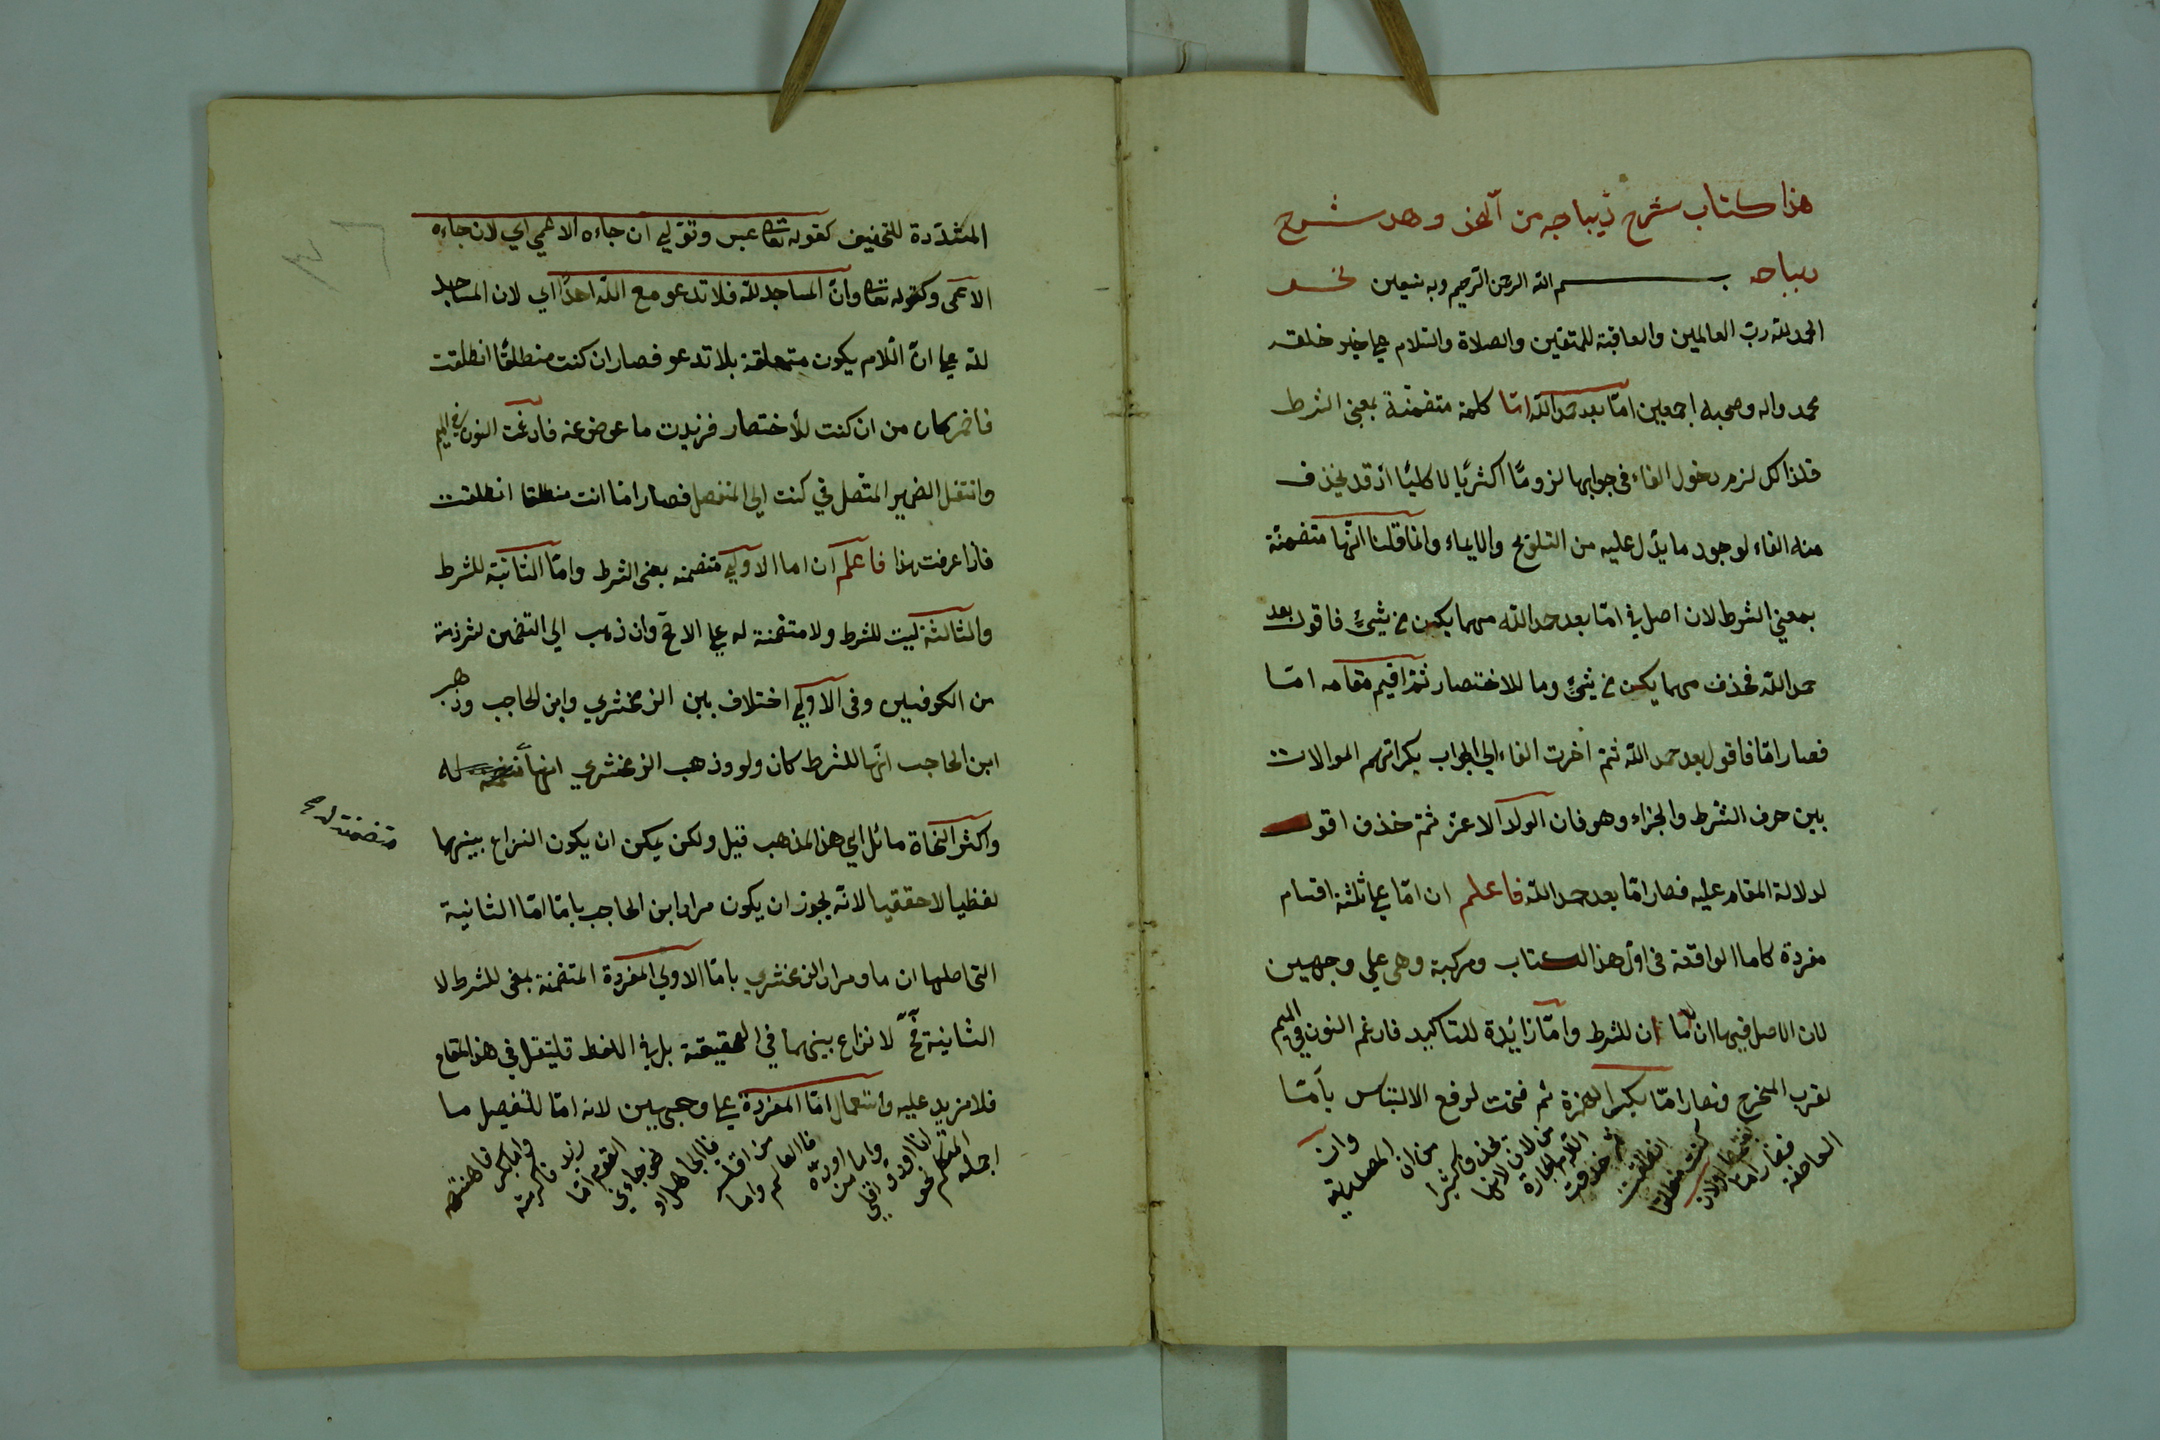 هذا كتاب شرح ديباجه من النحو وهد شرح
ديباجه بسم الله الرحمن الرحيم وبه نستعين نحو
الحمد لله رب العالمين والعاقبة للمتقين والصلاة والسلام على خير خلقه
محمد واله وصحبه اجمعين امّا بعد حمد الله امّا كلمة متضمنة بمعنى الشرط
فلذا كل لزم دخول الفاء في جوابها لزومًا اكثريًا لا كليًا اذ قد يحذف
منه الفاء لوجود ما يدل عليه من التلويح والايماء وانما قلنا انّها متضمنة
بمعنى الشرط لان اصل في امّا بعد حمد الله مهما يكن من شيئ فاقول بعد
حمد الله فحذف مهما يكن من شيئ وما للاختصار ثم اقيم مقامه امّا
فصار امّا فاقول بعد حمد الله ثم اخرت الفاء الى الجواب بكراتهم الموالات
بين حرف الشرط والجزاء وهو فان الولد الاعز ثم حذف اقول
لدلالة المقام عليه فصار امّا بعد حمد الله فاعلم ان امّا على ثلثة اقسام
مفردة كاما الواقعة في اول هذا الكتاب ومركبة وهي على وجهين
لان الاصل فيها ان ما ان للشرط وامّا زائدة للتاكيد فادغم النون في الميم
لقرب المخرج فصار امّا بكسر الهمزة ثم فتحت لرفع الالتباس بأمّا
العاطفة فصار امّا
كنت منطلقا انطلقت ثم حذفت اللام الجارة من لان لانها تحذف كثيرا من ان المصدرية وان
المشدّدة للتخفيف كقوله تعالى عبس وتولى ان جاءه الاعمى اي لان جاءه
الاعمى وكقوله تعالى وانّ المساجد لله فلا تدعو مع الله احدًا اي لان المساجد
لله على انّ اللام يكون متعلقة بلا تدعو فصار ان كنت منطلقًا انطلقت
فاضمر كان من ان كنت للأختصار فزيدت ما عوض عنه فادغمت النون في الميم
وانتقل الضمير المتصل في كنت الى المنفصل فصار امّا انت منطلقا انطلقت
فاذا عرفت هذا فاعلم ان اما الاولى متضمنه بمعنى الشرط وامّا الثانية للشرط
والثالثة ليت للشرط ولا متضمنة له على الاصح وان ذهب الى التضمن لشرذمة
من الكوفيين وفى الاولى اختلاف بين الزمخشري وابن الحاجب وذهب
ابن الحاجب انّها للشرط كان ولو وذهب الزمخشري انها له
متضمنة له صح
واكثر النحاة مائل الى هذا المذهب قيل ولكن يمكن ان يكون النزاع بينهما
لفظيا لا حققيا لانه يجوز ان يكون مراد ابن الحاجب بامّا امّا الثانية
التي اصلها ان ما ومراد الزمخشري بامّا الاولى المفردة المتضمنة بمعنى للشرط لا
الثانية فح لا نزاع بينهما في الحقيقة بل في اللفظ قليتقل في هذا المقام
فلا مزيد عليه واستعمال امّا المفردة على وجهين لانه امّا للتفصيل ما
اجمله المتكلم نحو
واما من
فاالعالم واما
من
فاالجاهل او
نحو جاءني
القوم امّا
زيد فاكرمته
وامّا بكر فاهنته